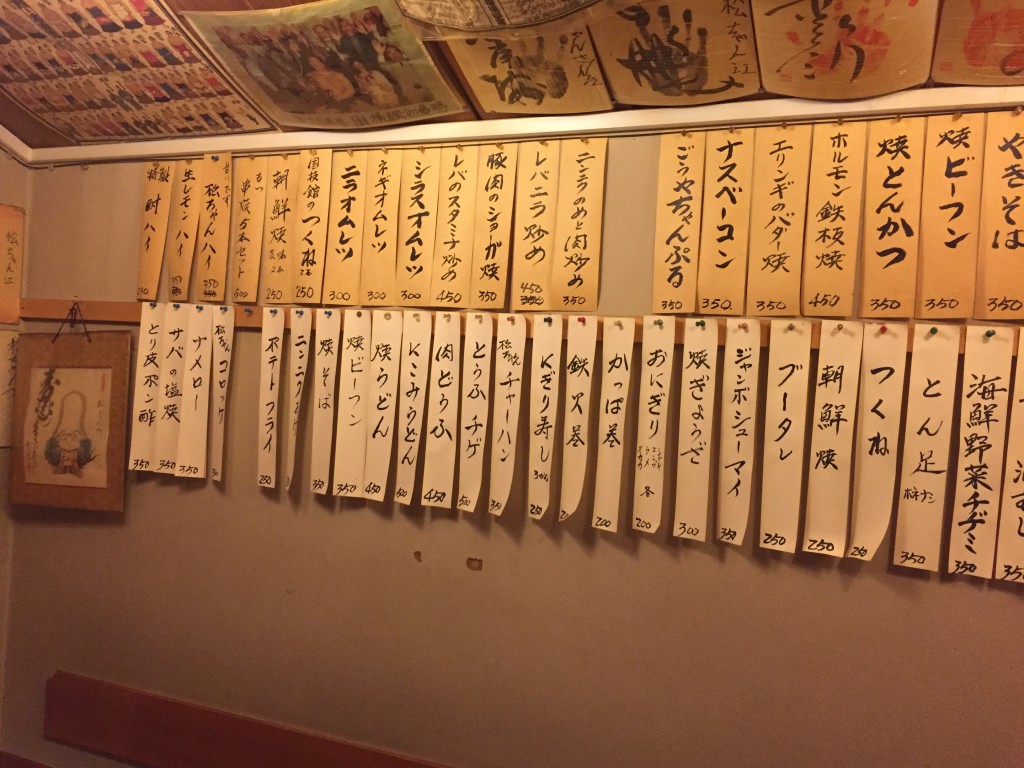 やきそば
350
焼ビーフン
350
焼とんかつ
350
ホルモン鉄板焼
450
エリンギのバター焼
350
ナスベーコン
350
ごうやちゃんぷる
350
ニンニクのめと肉炒め
350
レバニラ炒め
450
350
豚肉のショウガ焼
350
レバのスタミナ炒め
450
シラスオムレツ
300
ネギオムレツ
300
ニラオムレツ
300
国技館のつくね
250
朝鮮焼
250
もつ串焼5本セット
300
松ちゃんハイ
350
生レモンハイ
特製酎ハイ
海鮮野菜チヂミ
350
とん足
350
つくね
250
朝鮮焼
250
ブータレ
250
ジャンボシューマイ
350
焼ぎょうざ
300
おにぎり
200
かっぱ巻
200
鉄火巻
にぎり寿し
松ちゃんチャーハン
350
とうふチゲ
500
肉どうふ
450
にこみうどん
500
焼うどん
450
焼ビーフン
350
焼そば
350
ポテトフライ
250
松ちゃんコロッケ
ナメロー
350
サバの塩焼
350
とり皮ポン酢
350
松ちゃん江